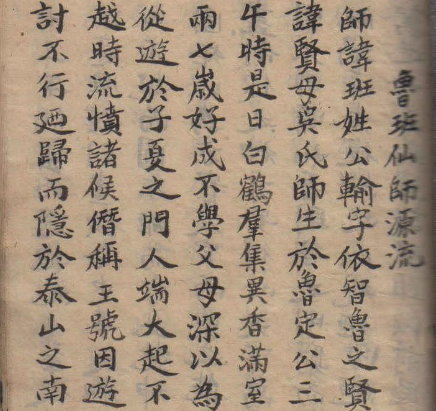 魯班仙師源流
師諱班姓公輸字依智魯之賢
諱賢母吳氏師生於魯定公三
午時是日白鶴羣集異香滿室
兩七歲好成不學父母深以為
從遊於子夏之門人端大起不
越時流憤諸候僭稱王號因遊
討不行廼歸而隱於泰山之南